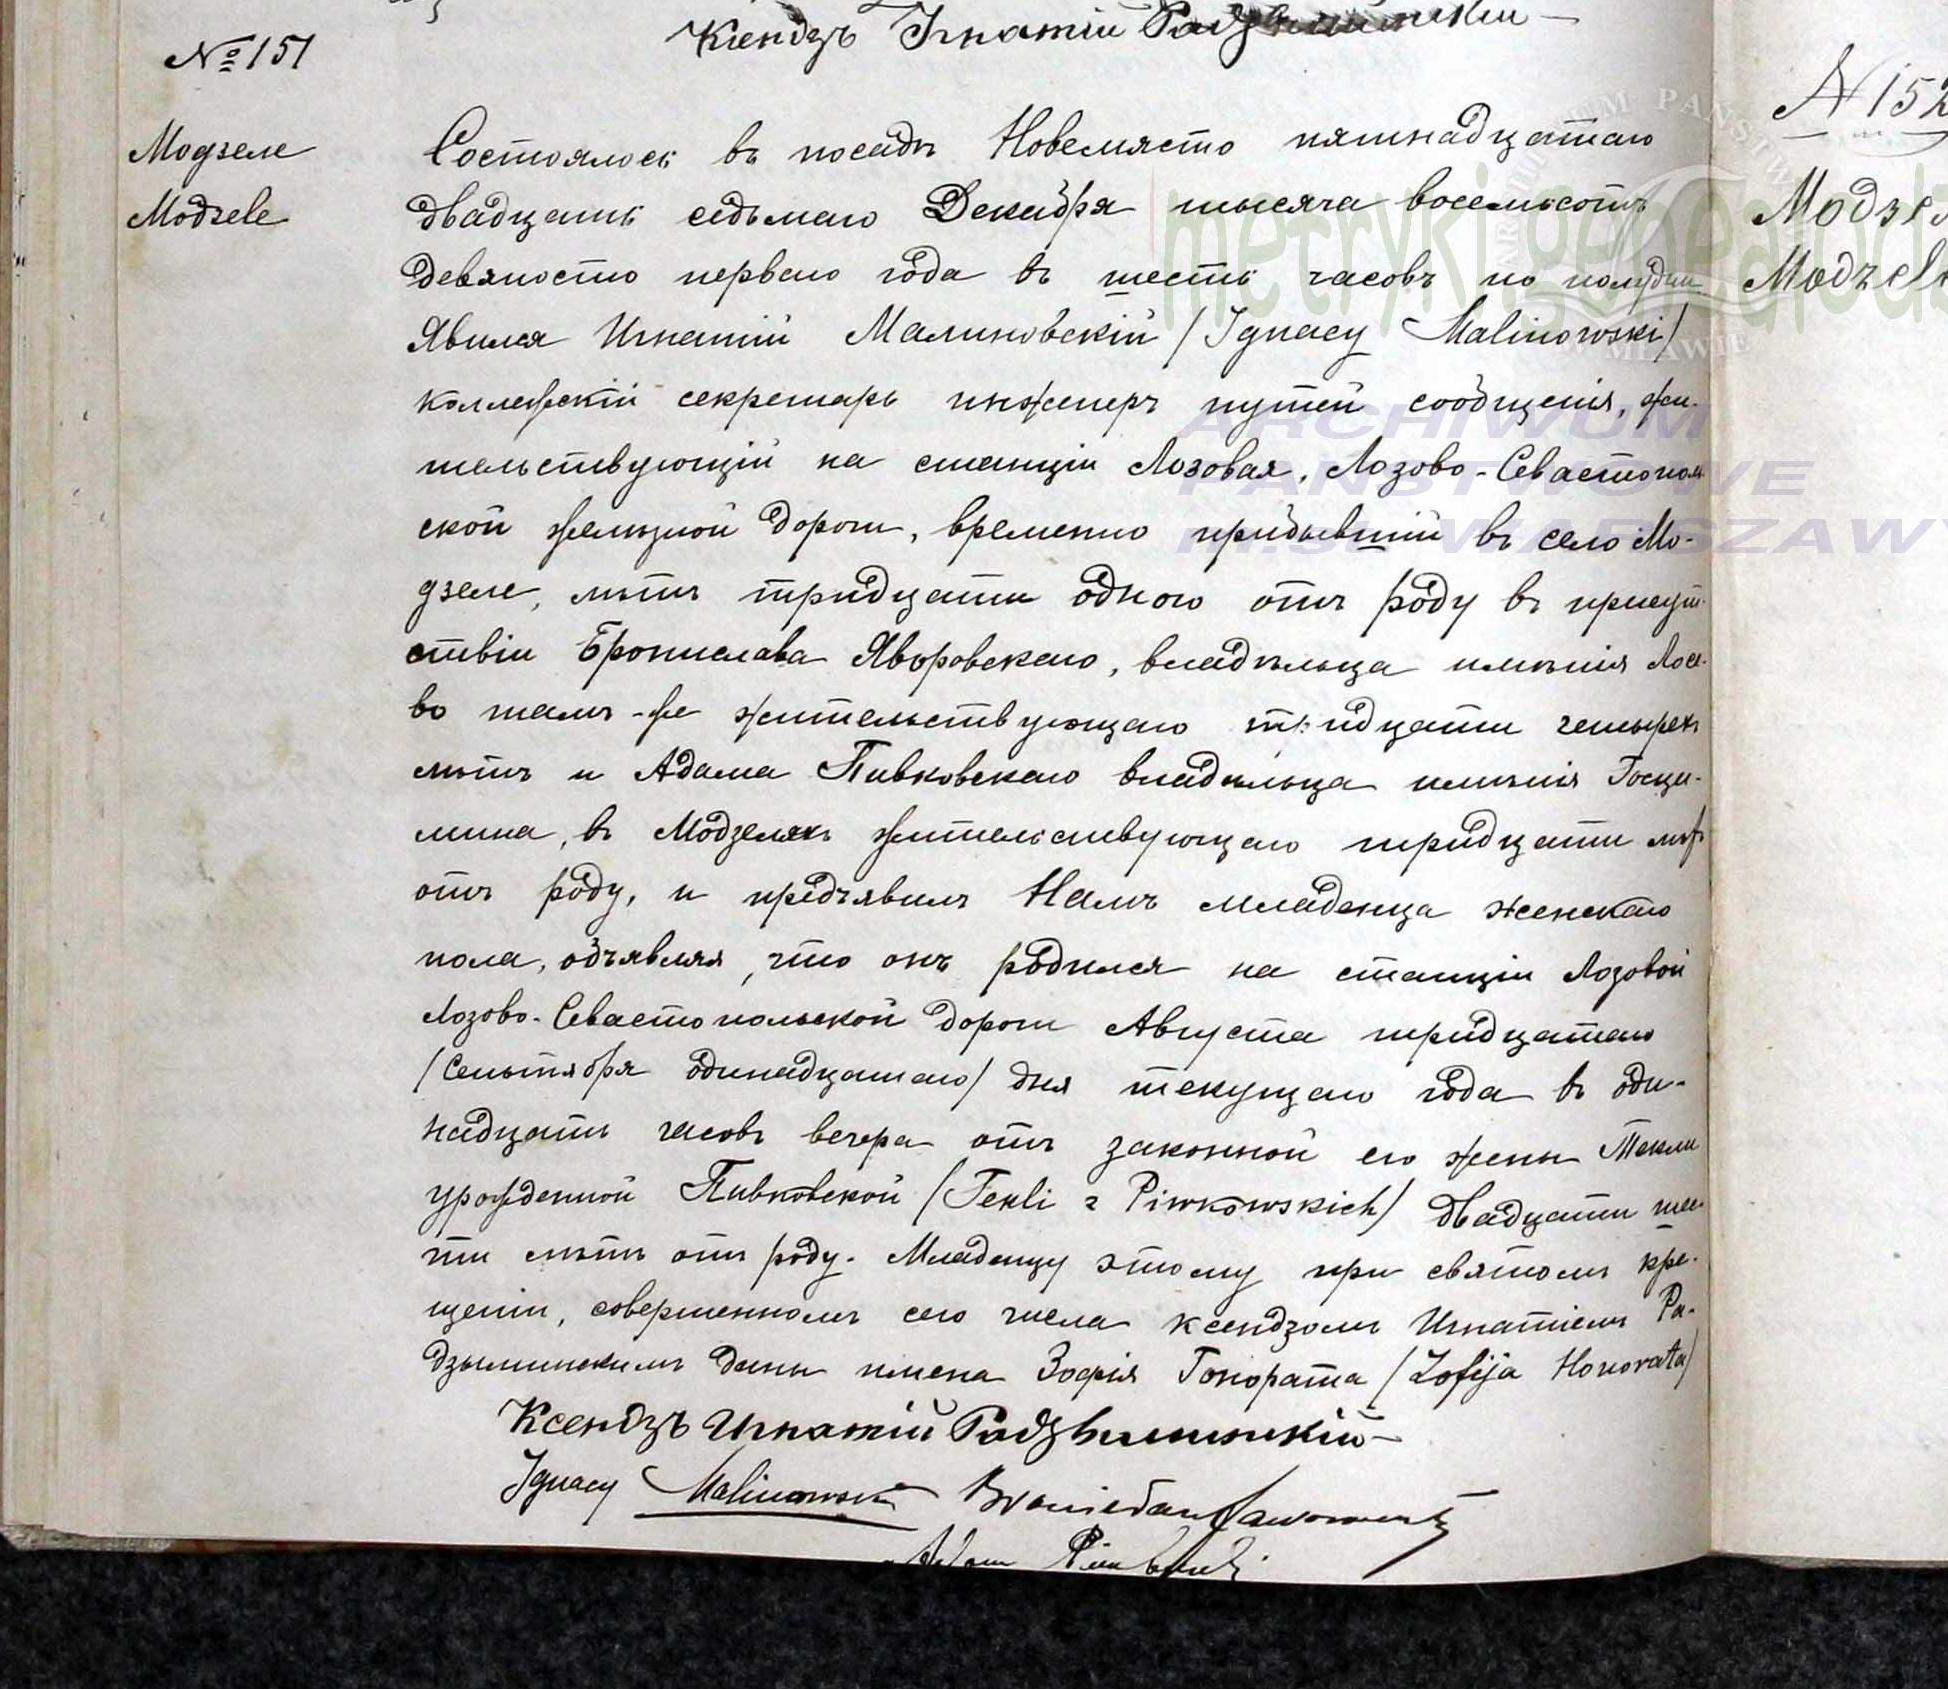 Ксендзъ Игнатій
№ 151
Модзеле
Modzele
Состоялось въ посадѣ Новемясто пятнадцатаго
двадцать седьмаго Декабря тысяча восемьсотъ
девяносто перваго года въ шесть часовъ по полудни
Явился Игнатій Малиновскій /Ignacy Malinowski/
коллежскій секретарь инженеръ путей сообщенія, жи-
тельствующій на станціи Лозовая, Лозово-Севастополь
ской желѣзной дороги, временно прибывшій въ село Мо-
дзеле, лѣтъ тридцати одного отъ роду въ присут-
ствіи Бронислава Яворовскаго, владѣльца имѣнія Лосе-
во тамъ-же жительствующаго тридцати четырехъ
лѣтъ и Адама Пивковскаго владѣльца имѣнія Госци-
мина, въ Модзеляхъ жительствующаго тридцати лѣтъ
отъ роду, и предъявилъ Намъ младенца женскаго
пола, объявляя, что онъ родился на станціи Лозовой
Лозово-Севастопольской дороги Августа тридцатаго
/Сентября одинадцатаго/ дня текущаго года въ оди-
надцать часовъ вечера отъ законной его жены Текли
урожденной Пивковской /Tekli z Piwkowskich/ двадцати шес-
ти лѣтъ отъ роду. Младенцу этому при святомъ кре-
щеніи, совершенномъ сего числа ксендзомъ Игнатіемъ Ра-
дзыминскимъ даны имена Зофія Гонората /Zofija Honorata/
Ксендзъ Игнатій Радзыминскій
Ignacy Malinowski Bronisław Jaworowski
Adam Piwkowski
N 152
Модзел
Modzele
metryki.genealodz
ARCHIWUM PAŃSTW
MŁAWIE
ARCHIWUM
PAŃSTWOWE
M.ST. WARSZAWY